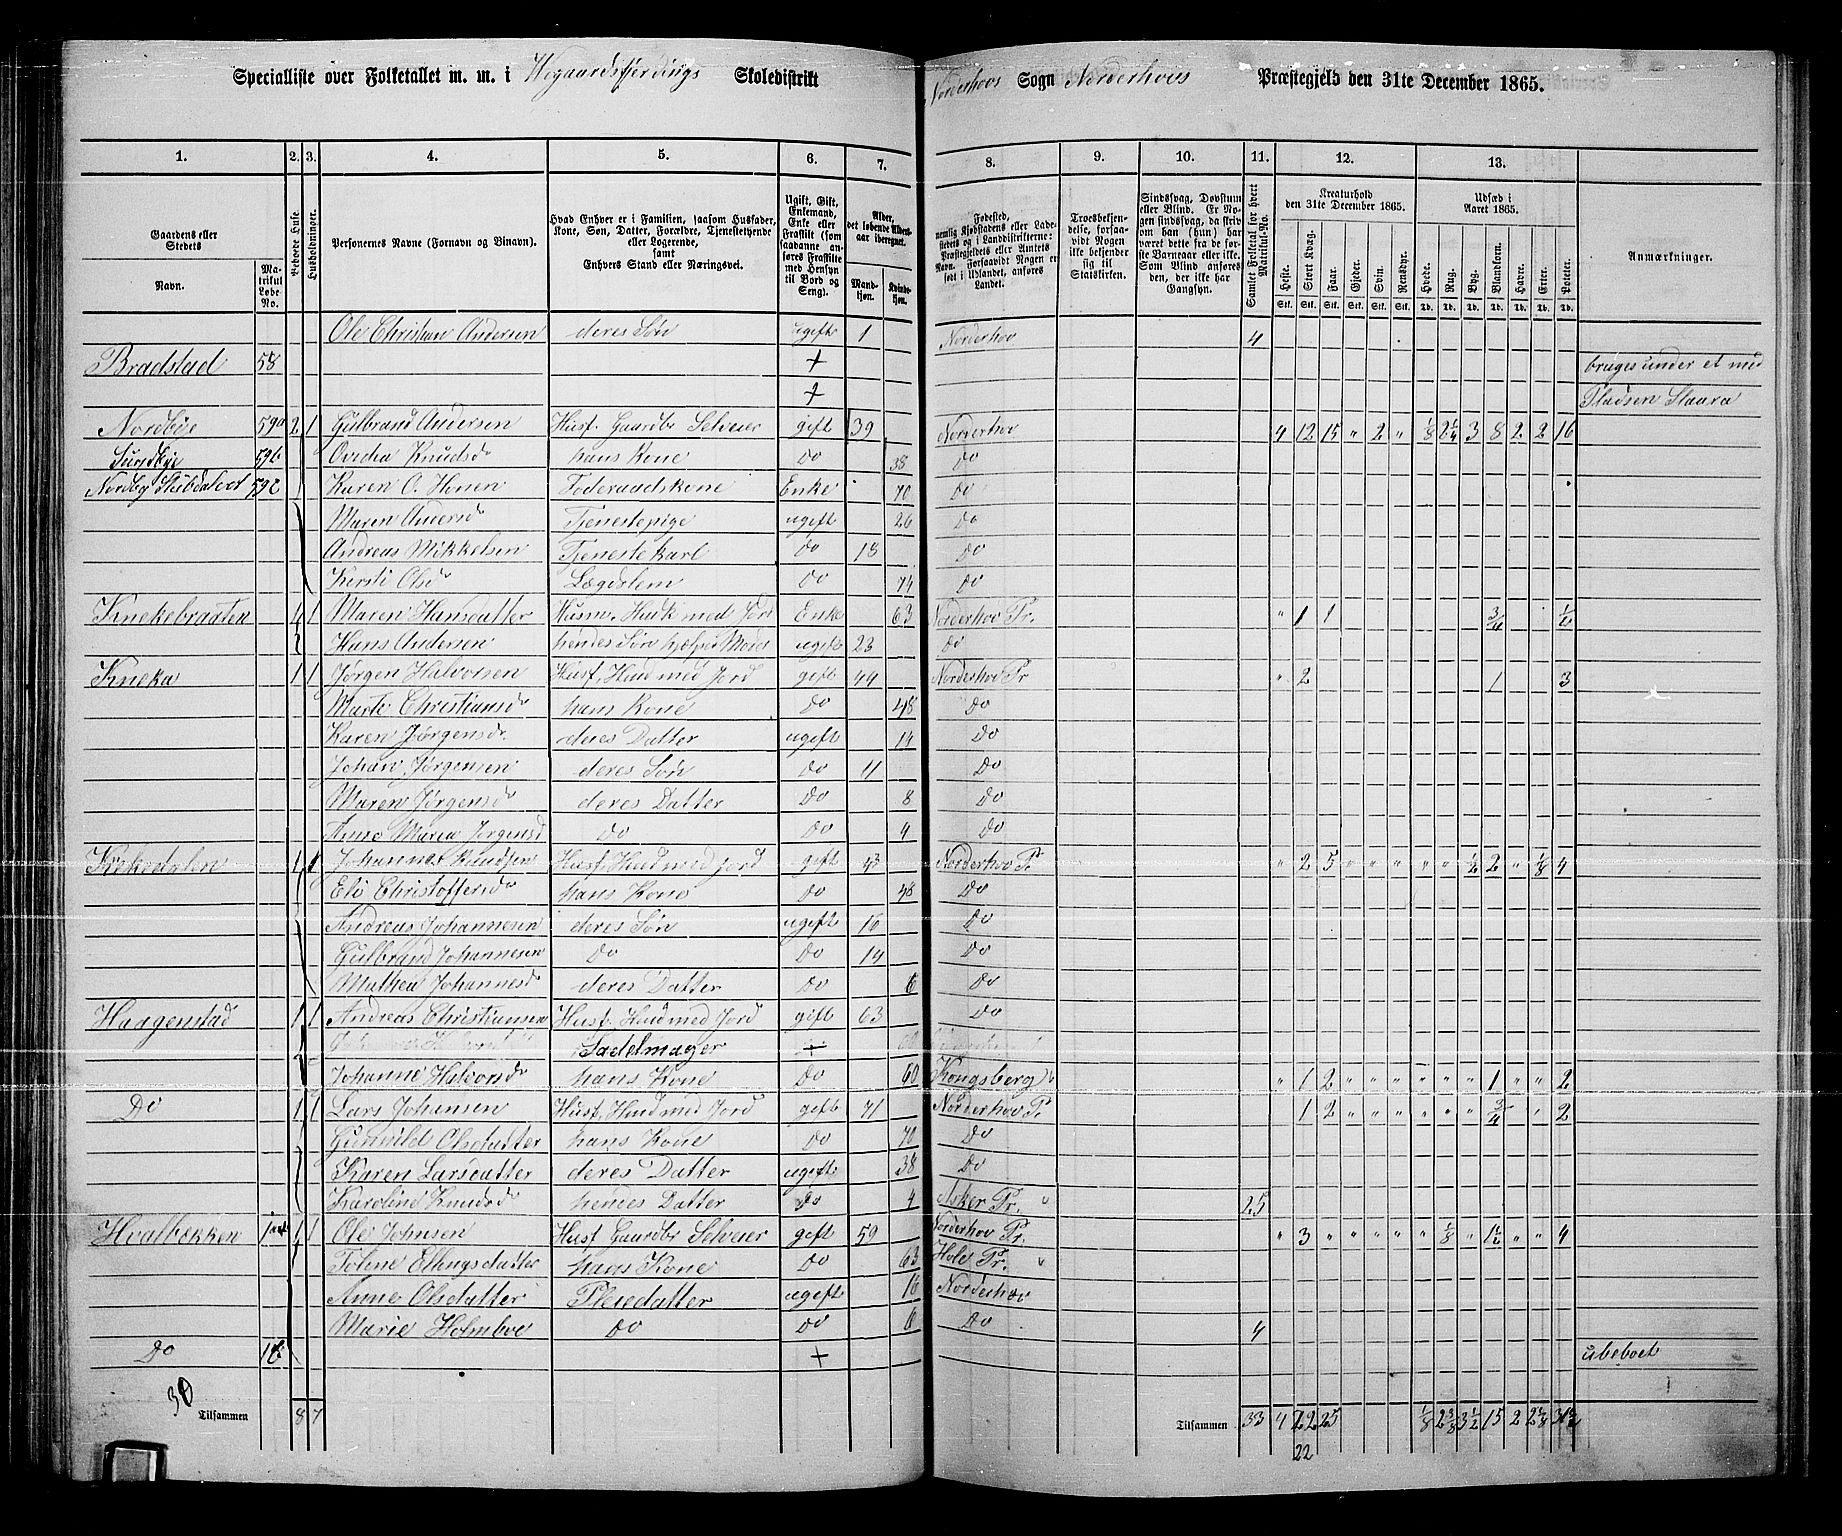 Specialliste over Folketallet m. m. i Hogaardsfjerdings Skoledistrikt Norderhovs Sogn Norderhovs Præstegjeld den 31te December 1865.
1. 2. 3. 4. 5. 6. 7. 8. 9. 10. 11. 12. 13.
Gaardens eller Stedets Navn. Matrikul Løbe-No.
Beboede Huse. Husholdninger.
Personernes Navne (Fornavn og Binavn).
Hvad Enhver er i Familien, saasom Husfader, Kone, Søn, Datter, Forældre, Tjenestetyende eller Logerende, samt Enhvers Stand eller Næringsvei.
Ugift, Gift, Enkemand, Enke eller Fraskilt (som saadanne anføres Fraskilte med Hensyn til Bord og Seng).
Alder, det løbende Alders-aar iberegnet. Mandkjøn. Kvindekjøn.
Fødested, nemlig Kjøbstadens eller Ladestedets og i Landdistrikterne: Præstegjeldets eller Amtets Navn. Forsaavidt Nogen er født i Udlandet, anføres Landet.
Troesbekjendelse, forsaavidt Nogen ikke bekjender sig til Statskirken.
Sindssvag, Døvstum eller Blind. Er Nogen sindssvag, da skrives om han (hun) har været dette fra de første Barneaar eller ikke. Som Blind anføres den, der ikke har Gangsyn.
Samlet Folketal for hvert Matrikul-No.
Kreaturhold den 31te December 1865.
Heste. Stort Kvæg. Faar. Gjeder. Svin. Rensdyr.
Udsæd i Aaret 1865.
Hvede. Rug. Byg. Blandkorn. Havre. Erter. Poteter.
Anmærkninger.
Ole Christian Andersen deres Søn ugift 1 Norderhov 4
Bradstad 58 + bruges under et med
+ Pladsen Staara
Nordbye 59a 2 1 Gulbrand Andersen Husf. Gaardbr Selveier gift 39 Norderhov 4 12 15 " 2 " 1/8 2 1/4 3 8 2 2 16
59b Ovidia Knudsd hans Kone Do 38 Do
59c Karen O. Honen Føderaadskone Enke 70 Do
Maren Andersd Tjenestepige ugift 26 Do
Andreas Mikkelsen Tjenestekarl Do 18 Do
Kirsti Olsd Lægdslem Do 74 Do
Knekebraaten 1 Maren Hansdatter Husm. Enke med Jord Enke 63 Norderhov Pr. " 1 1 3/4
Hans Andersen hendes Søn hjelper Moder ugift 23 Do
Kneka 1 1 Jørgen Halvorsen Husf. Husmd med Jord gift 44 Norderhov Pr " 2 1 3
Marte Christiansd hans Kone Do 48 Do
Karen Jørgensd. deres Datter ugift 14 Do
Johan Jørgensen deres Søn Do 11 Do
Maren Jørgensd deres Datter Do 8 Do
Anne Maria Jørgensd Do Do 4 Do
Knekedalen 1 1 Johannes Knudsen Husf. Husmd med Jord gift 43 Norderhov Pr " 2 5 " " " " " 1/2 2 " 1/8 4
Eli Christoffersd hans Kone Do 48 Do
Andreas Johannesen deres Søn ugift 16 Do
Gulbrand Johannesen Do Do 14 Do
Mathea Johannesd deres Datter Do 6 Do
Haagenstad 1 1 Andreas Christiansen Husf. Husmd med Jord gift 63 Do
Sadelmager +
Johanne Halvorsd hans Kone Do 60 Kongsberg " 1 2 " " " " " " 1 " " 2
Do 1 1 Lars Johansen Husf. Husmd med Jord gift 71 Norderhov Pr " 1 2 " " " " " " 3/4 " " 2
Gunnild Olsdatter hans Kone Do 70 Do
Karen Larsdatter deres Datter ugift 38 Do
Karoline Knudsd hendes Datter Do 4 Asker Pr. 25
Hvalbekken 1 1 Ole Johnsen Husf Gaardbr Selveier gift 59 Norderhov Pr. " 3 " " " " " 1/8 " 1 1/2 " " 4
Tolene Ellingsdatter hans Kone Do 63 Hole Pr.
Anne Olsdatter Pleiedatter ugift 16 Norderhov
Marie Holmboe Do Do Do 4
Do + ubeboet
30
Tilsammen 8 7 Tilsammen 33 4 22 25 1/8 2 3/8 3 1/2 15 2 2 1/8
22